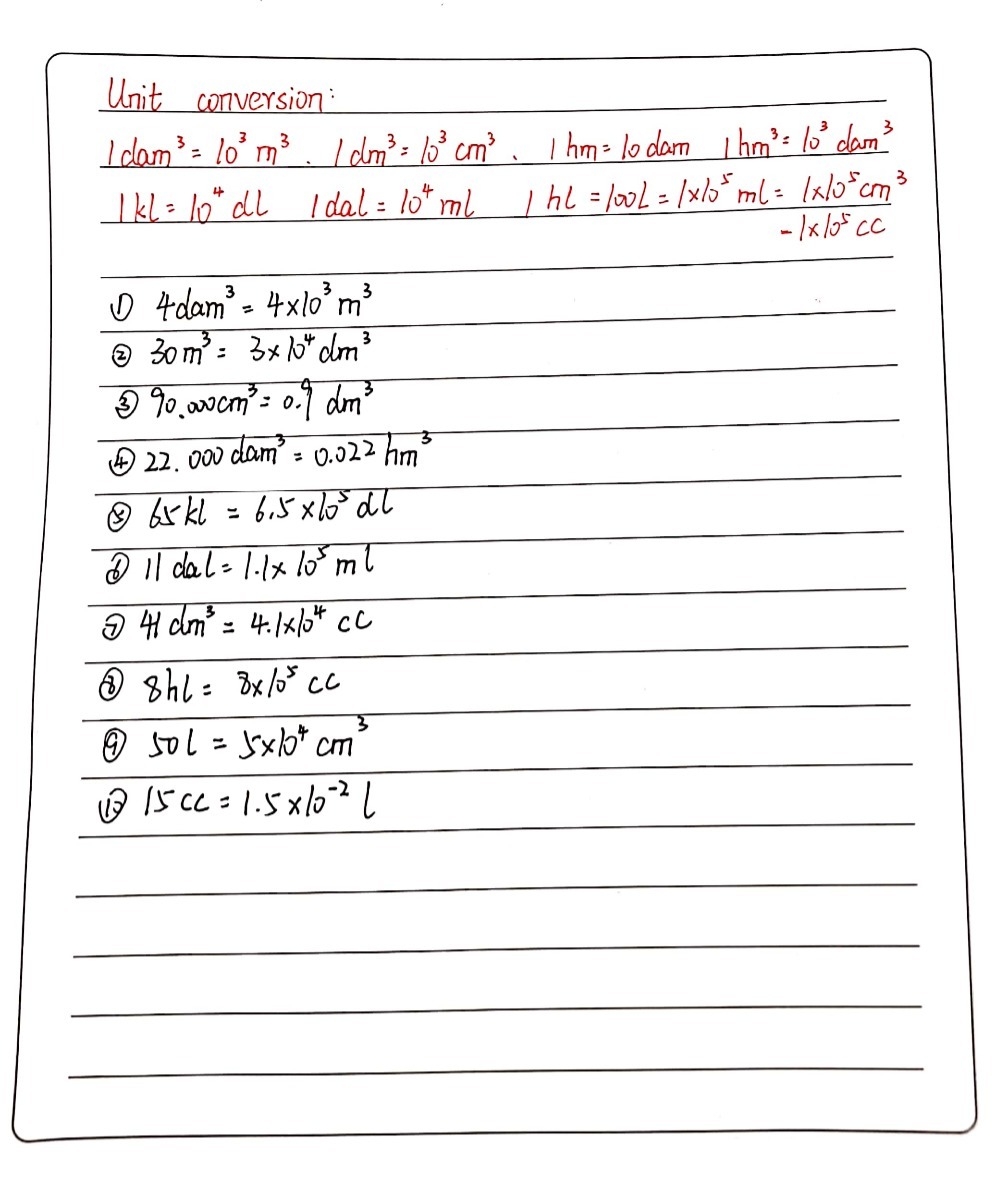 Unit conversion:
1 dam³ = 10³ m³ . 1 dm³ = 10³ cm³ 、 1 hm = 10 dam 1 hm³ = 10³ dam³
1 kl = 10⁴ dl 1 dal = 10⁴ ml 1 hl = 100L = 1×10⁵ ml = 1×10⁵ cm³
= 1×10⁵ cc
① 4dam³ = 4×10³ m³
② 30m³ = 3×10⁴ dm³
③ 90.000cm³ = 0.9 dm³
④ 22.000 dam³ = 0.022 hm³
⑤ 65 kl = 6.5×10⁵ dl
⑥ 11 dal = 1.1×10⁵ ml
⑦ 41 dm³ = 4.1×10⁴ cc
⑧ 8hl = 8×10⁵ cc
⑨ 50 l = 5×10⁴ cm³
⑩ 15 cc = 1.5×10⁻² l